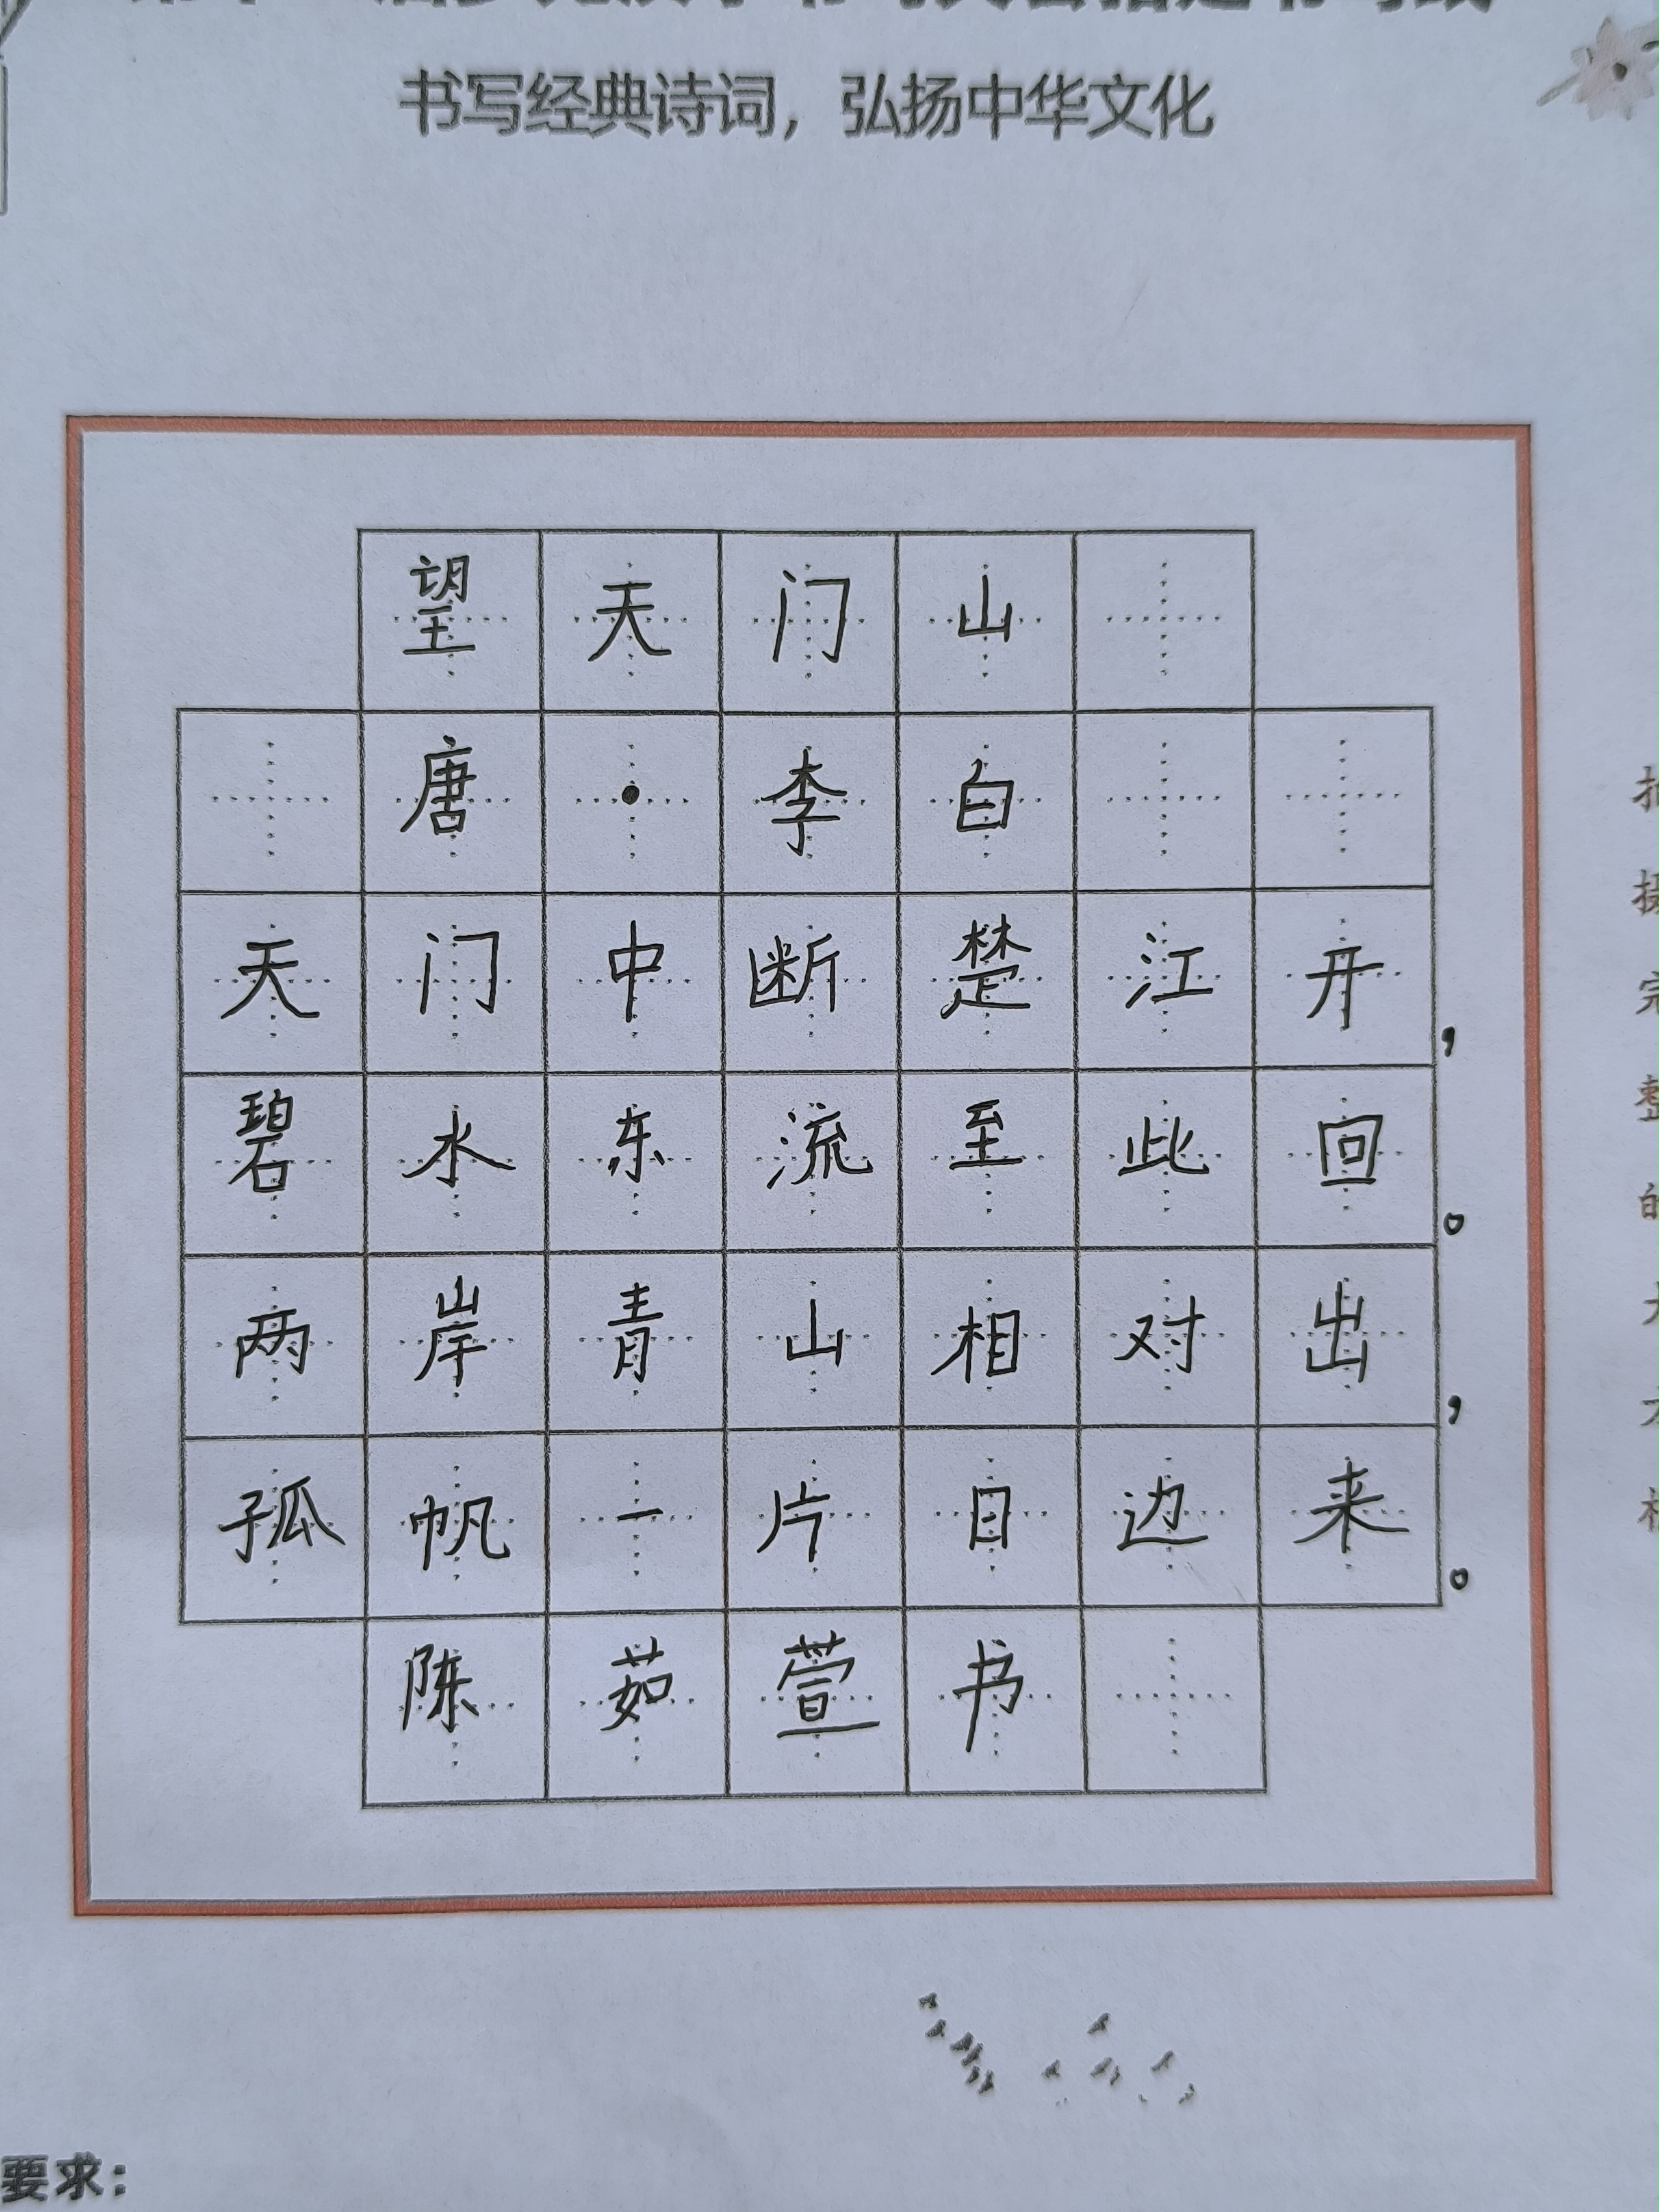 书写经典诗词，弘扬中华文化
望天门山
唐·李白
天门中断楚江开，
碧水东流至此回。
两岸青山相对出，
孤帆一片日边来。
陈茹萱书
要求：